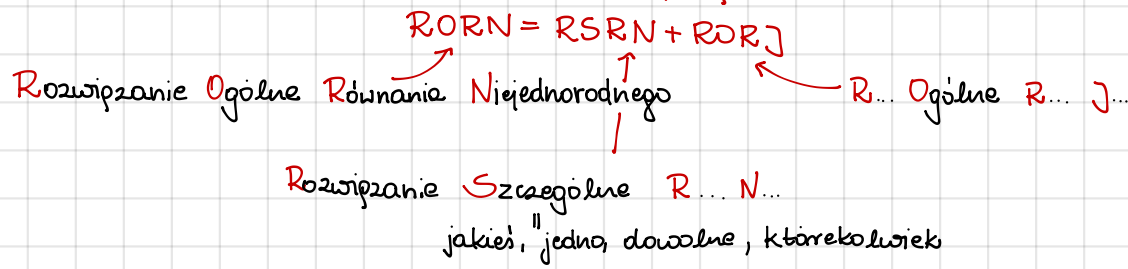 RORN = RSRN + RORJ
Rozwiązanie Ogólne Równania Niejednorodnego R... Ogólne R... J...
Rozwiązanie Szczególne R... N...
jakieś, "jedno, dowolne, którekolwiek